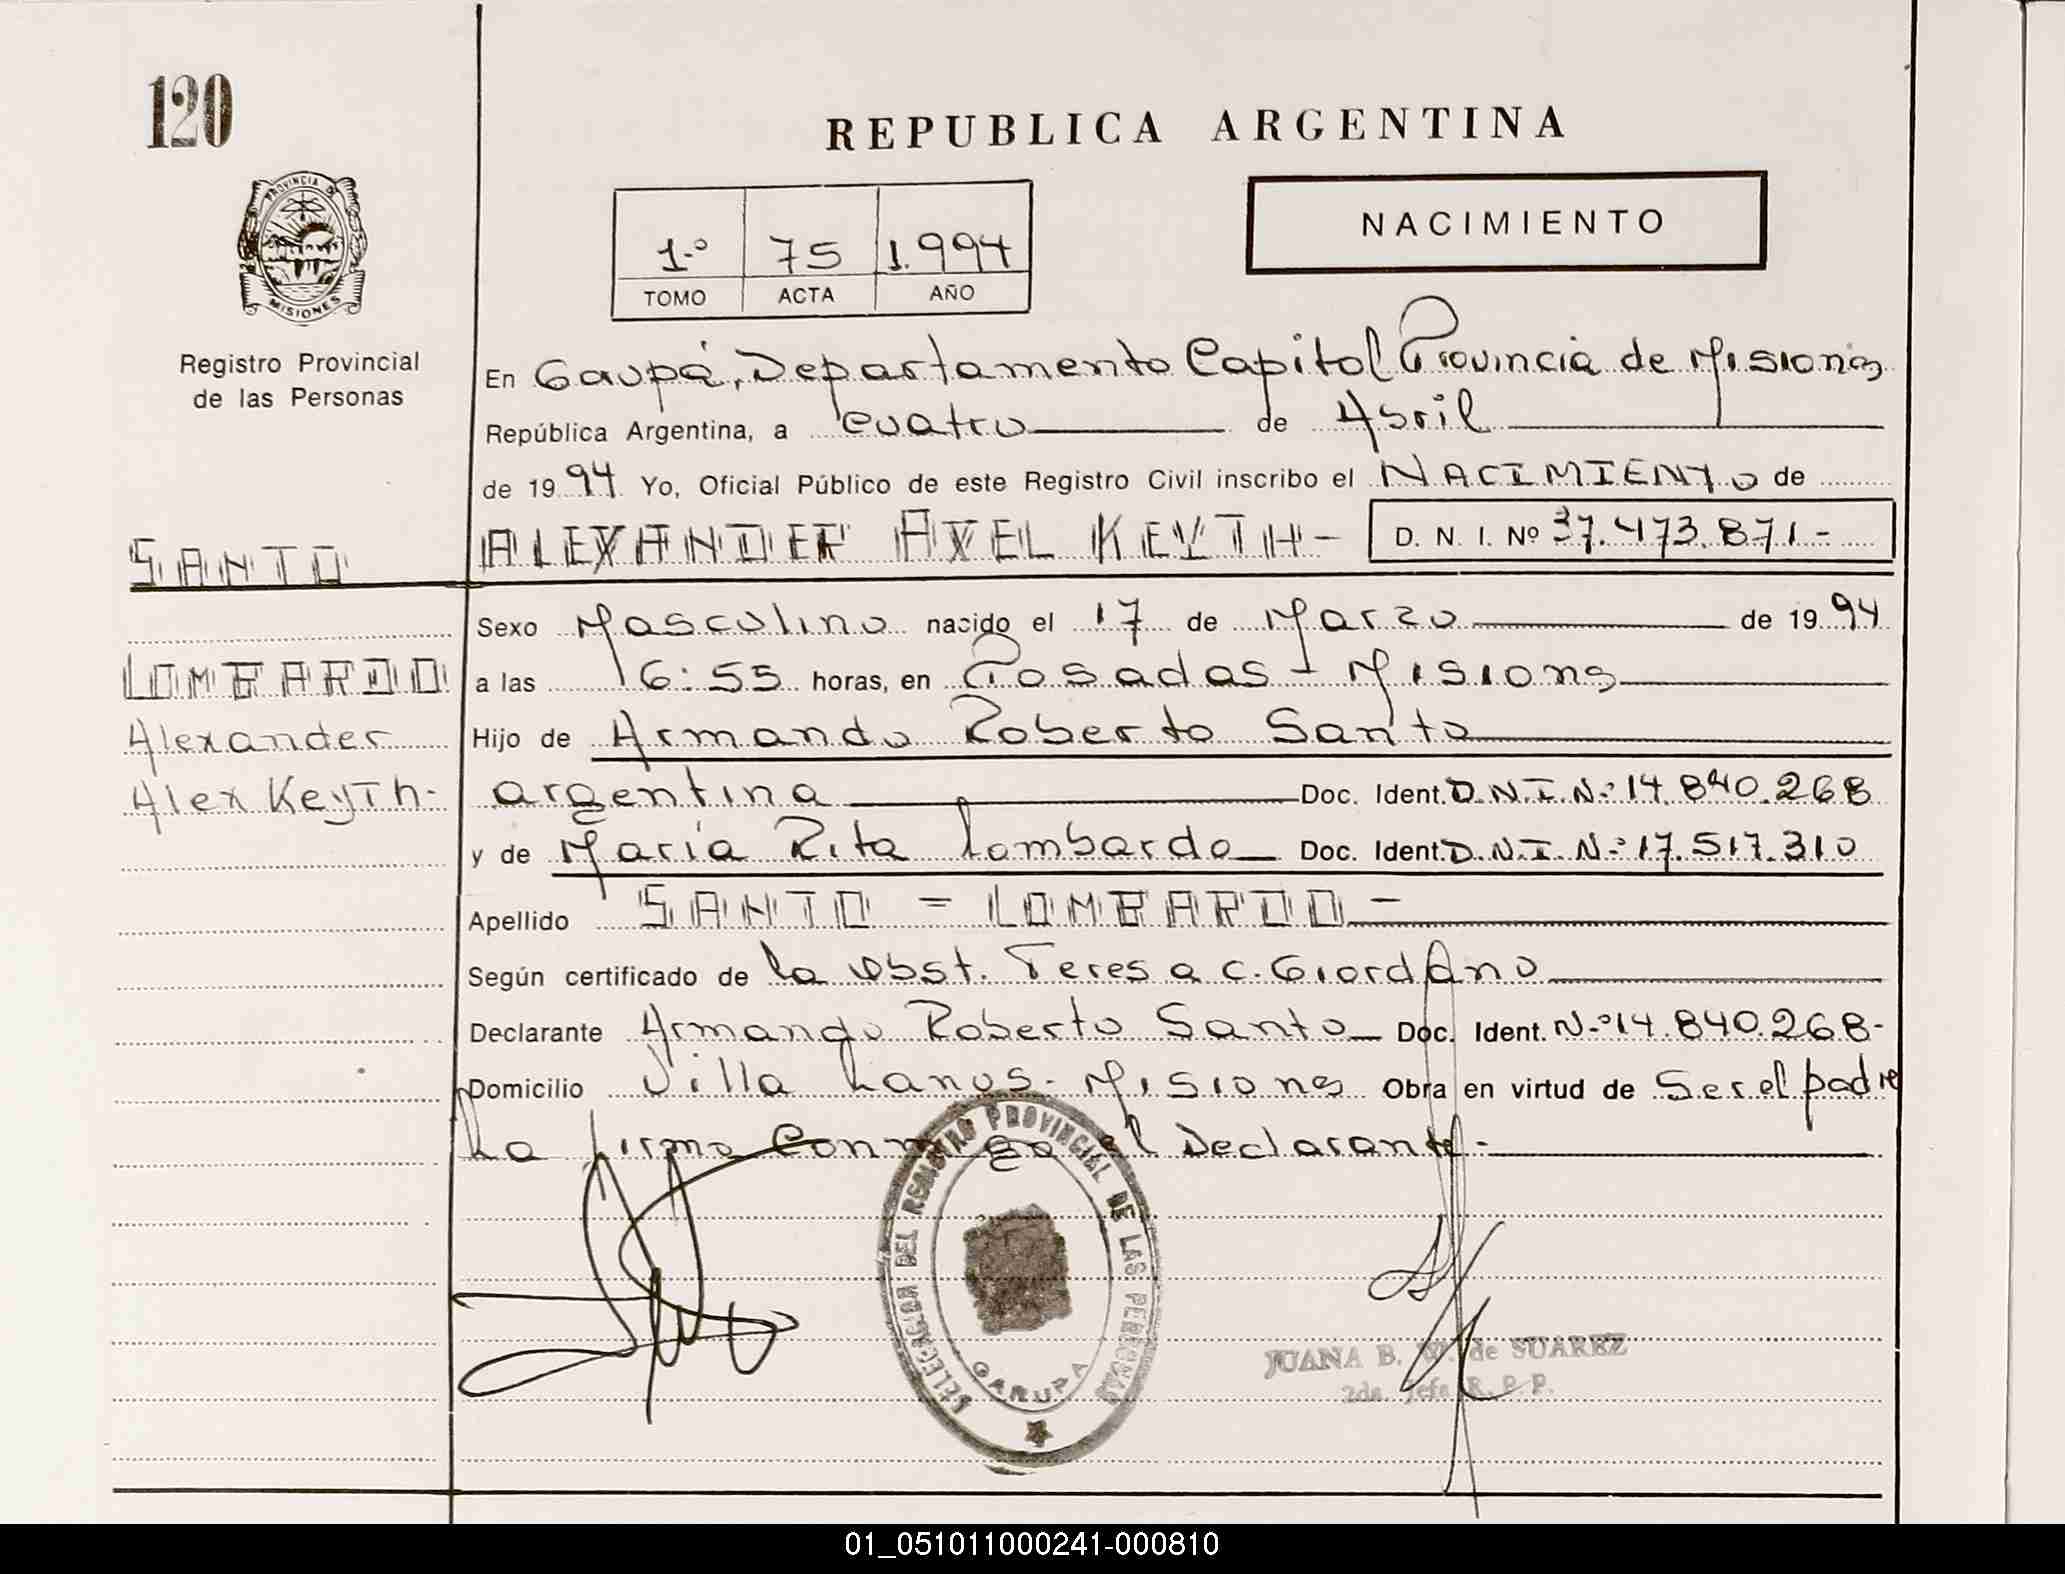 120
REPUBLICA ARGENTINA
PROVINCIA DE
MISIONES
Registro Provincial
de las Personas
1.º 75 1.994
TOMO ACTA AÑO
NACIMIENTO
En Garupá, Departamento Capital Provincia de Misiones
República Argentina, a cuatro de Abril
de 1994 Yo, Oficial Público de este Registro Civil inscribo el NACIMIENTO de
SANTO
ALEXANDER AXEL KEYTH- D. N. I. Nº 37.473.871-
Sexo Masculino nacido el 17 de Marzo de 1994
LOMBARDO
a las 16:55 horas, en Posadas - Misiones
Alexander
Hijo de Armando Roberto Santo
Alex Keyth-
argentina Doc. Ident. D.N.I.N.º 14.840.268
y de María Rita Lombardo Doc. Ident. D.N.I. N.º 17.517.310
Apellido SANTO = LOMBARDO-
Según certificado de la Obst. Teresa C. Giordano
Declarante Armando Roberto Santo Doc. Ident. N.º 14.840.268-
Domicilio Villa Lanus- Misiones Obra en virtud de Ser el padre
La firma Conmigo el Declarante-
DELEGACION DEL REGISTRO PROVINCIAL DE LAS PERSONAS
GARUPA
JUANA B. W. de SUAREZ
2da. Jefa R. P. P.
01_051011000241-000810